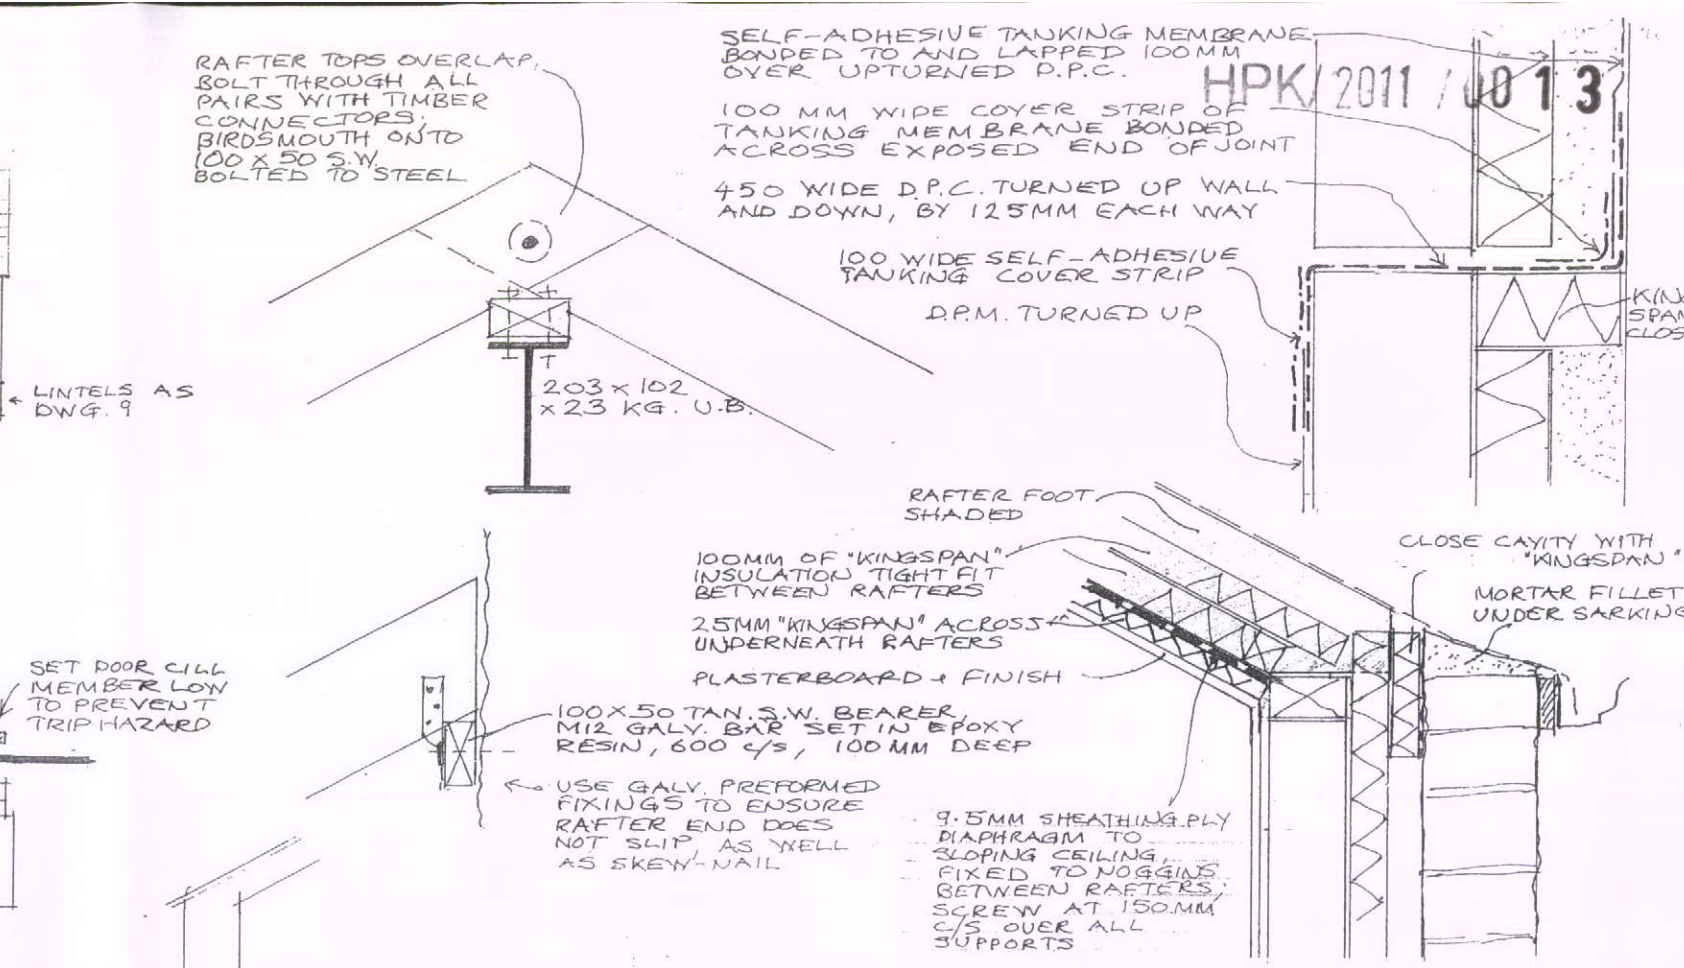 RAFTER TOPS OVERLAP,
BOLT THROUGH ALL
PAIRS WITH TIMBER
CONNECTORS;
BIRDSMOUTH ONTO
100 x 50 S.W.
BOLTED TO STEEL
SELF-ADHESIVE TANKING MEMBRANE
BONDED TO AND LAPPED 100MM
OVER UPTURNED D.P.C.
HPK/2011/0013
100 MM WIDE COVER STRIP OF
TANKING MEMBRANE BONDED
ACROSS EXPOSED END OF JOINT
450 WIDE D.P.C. TURNED UP WALL
AND DOWN, BY 125MM EACH WAY
100 WIDE SELF-ADHESIVE
TANKING COVER STRIP
D.P.M. TURNED UP
KING
SPAN
CLOS
LINTELS AS
DWG. 9
203 x 102
x 23 KG. U.B.
RAFTER FOOT
SHADED
100MM OF "KINGSPAN"
INSULATION TIGHT FIT
BETWEEN RAFTERS
25MM "KINGSPAN" ACROSS
UNDERNEATH RAFTERS
PLASTERBOARD & FINISH
CLOSE CAVITY WITH
"KINGSPAN"
MORTAR FILLET
UNDER SARKING
SET DOOR CILL
MEMBER LOW
TO PREVENT
TRIP HAZARD
100X50 TAN. S.W. BEARER,
M12 GALV. BAR SET IN EPOXY
RESIN, 600 c/s, 100MM DEEP
USE GALV. PREFORMED
FIXINGS TO ENSURE
RAFTER END DOES
NOT SLIP, AS WELL
AS SKEW-NAIL
9.5MM SHEATHING PLY
DIAPHRAGM TO
SLOPING CEILING,
FIXED TO NOGGINS
BETWEEN RAFTERS;
SCREW AT 150MM
C/S OVER ALL
SUPPORTS